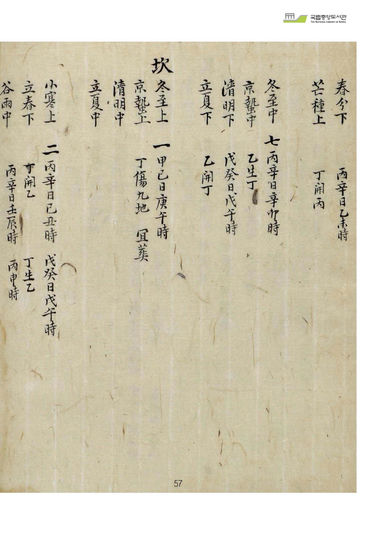 국립중앙도서관
春分下 丙辛日乙未時
芒種上 丁開丙
冬至中 七 丙辛日辛卯時
京蟄中 乙生丁
淸明下 戊癸日戊午時
立夏下 乙開丁
坎
冬至上 一 甲己日庚午時
京蟄上 丁傷九地 宜葬
淸明中
立夏中
小寒上 二 丙辛日己丑時 戊癸日戊午時
立春下 丁開乙 丁生乙
谷雨中 丙辛日壬辰時 丙申時
57